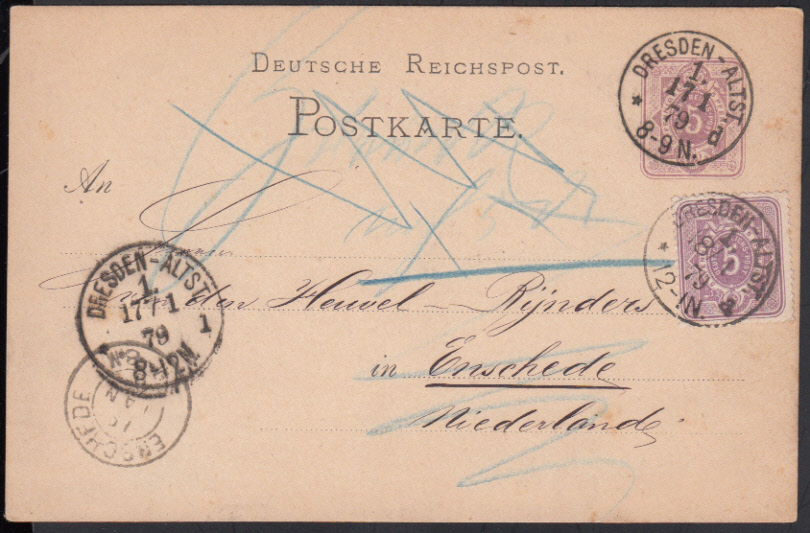 DEUTSCHE REICHSPOST.
POSTKARTE.
DRESDEN-ALTST.
1.
17 1
79
8-9 N.
d
5
An
DRESDEN-ALTST.
18 1
79
12-1N
5
DRESDEN-ALTST.
1.
17 1
79
8-12N.
1
van den Heuvel-Rijnders
in Enschede
Niederlande
ENSCHEDE
JAN